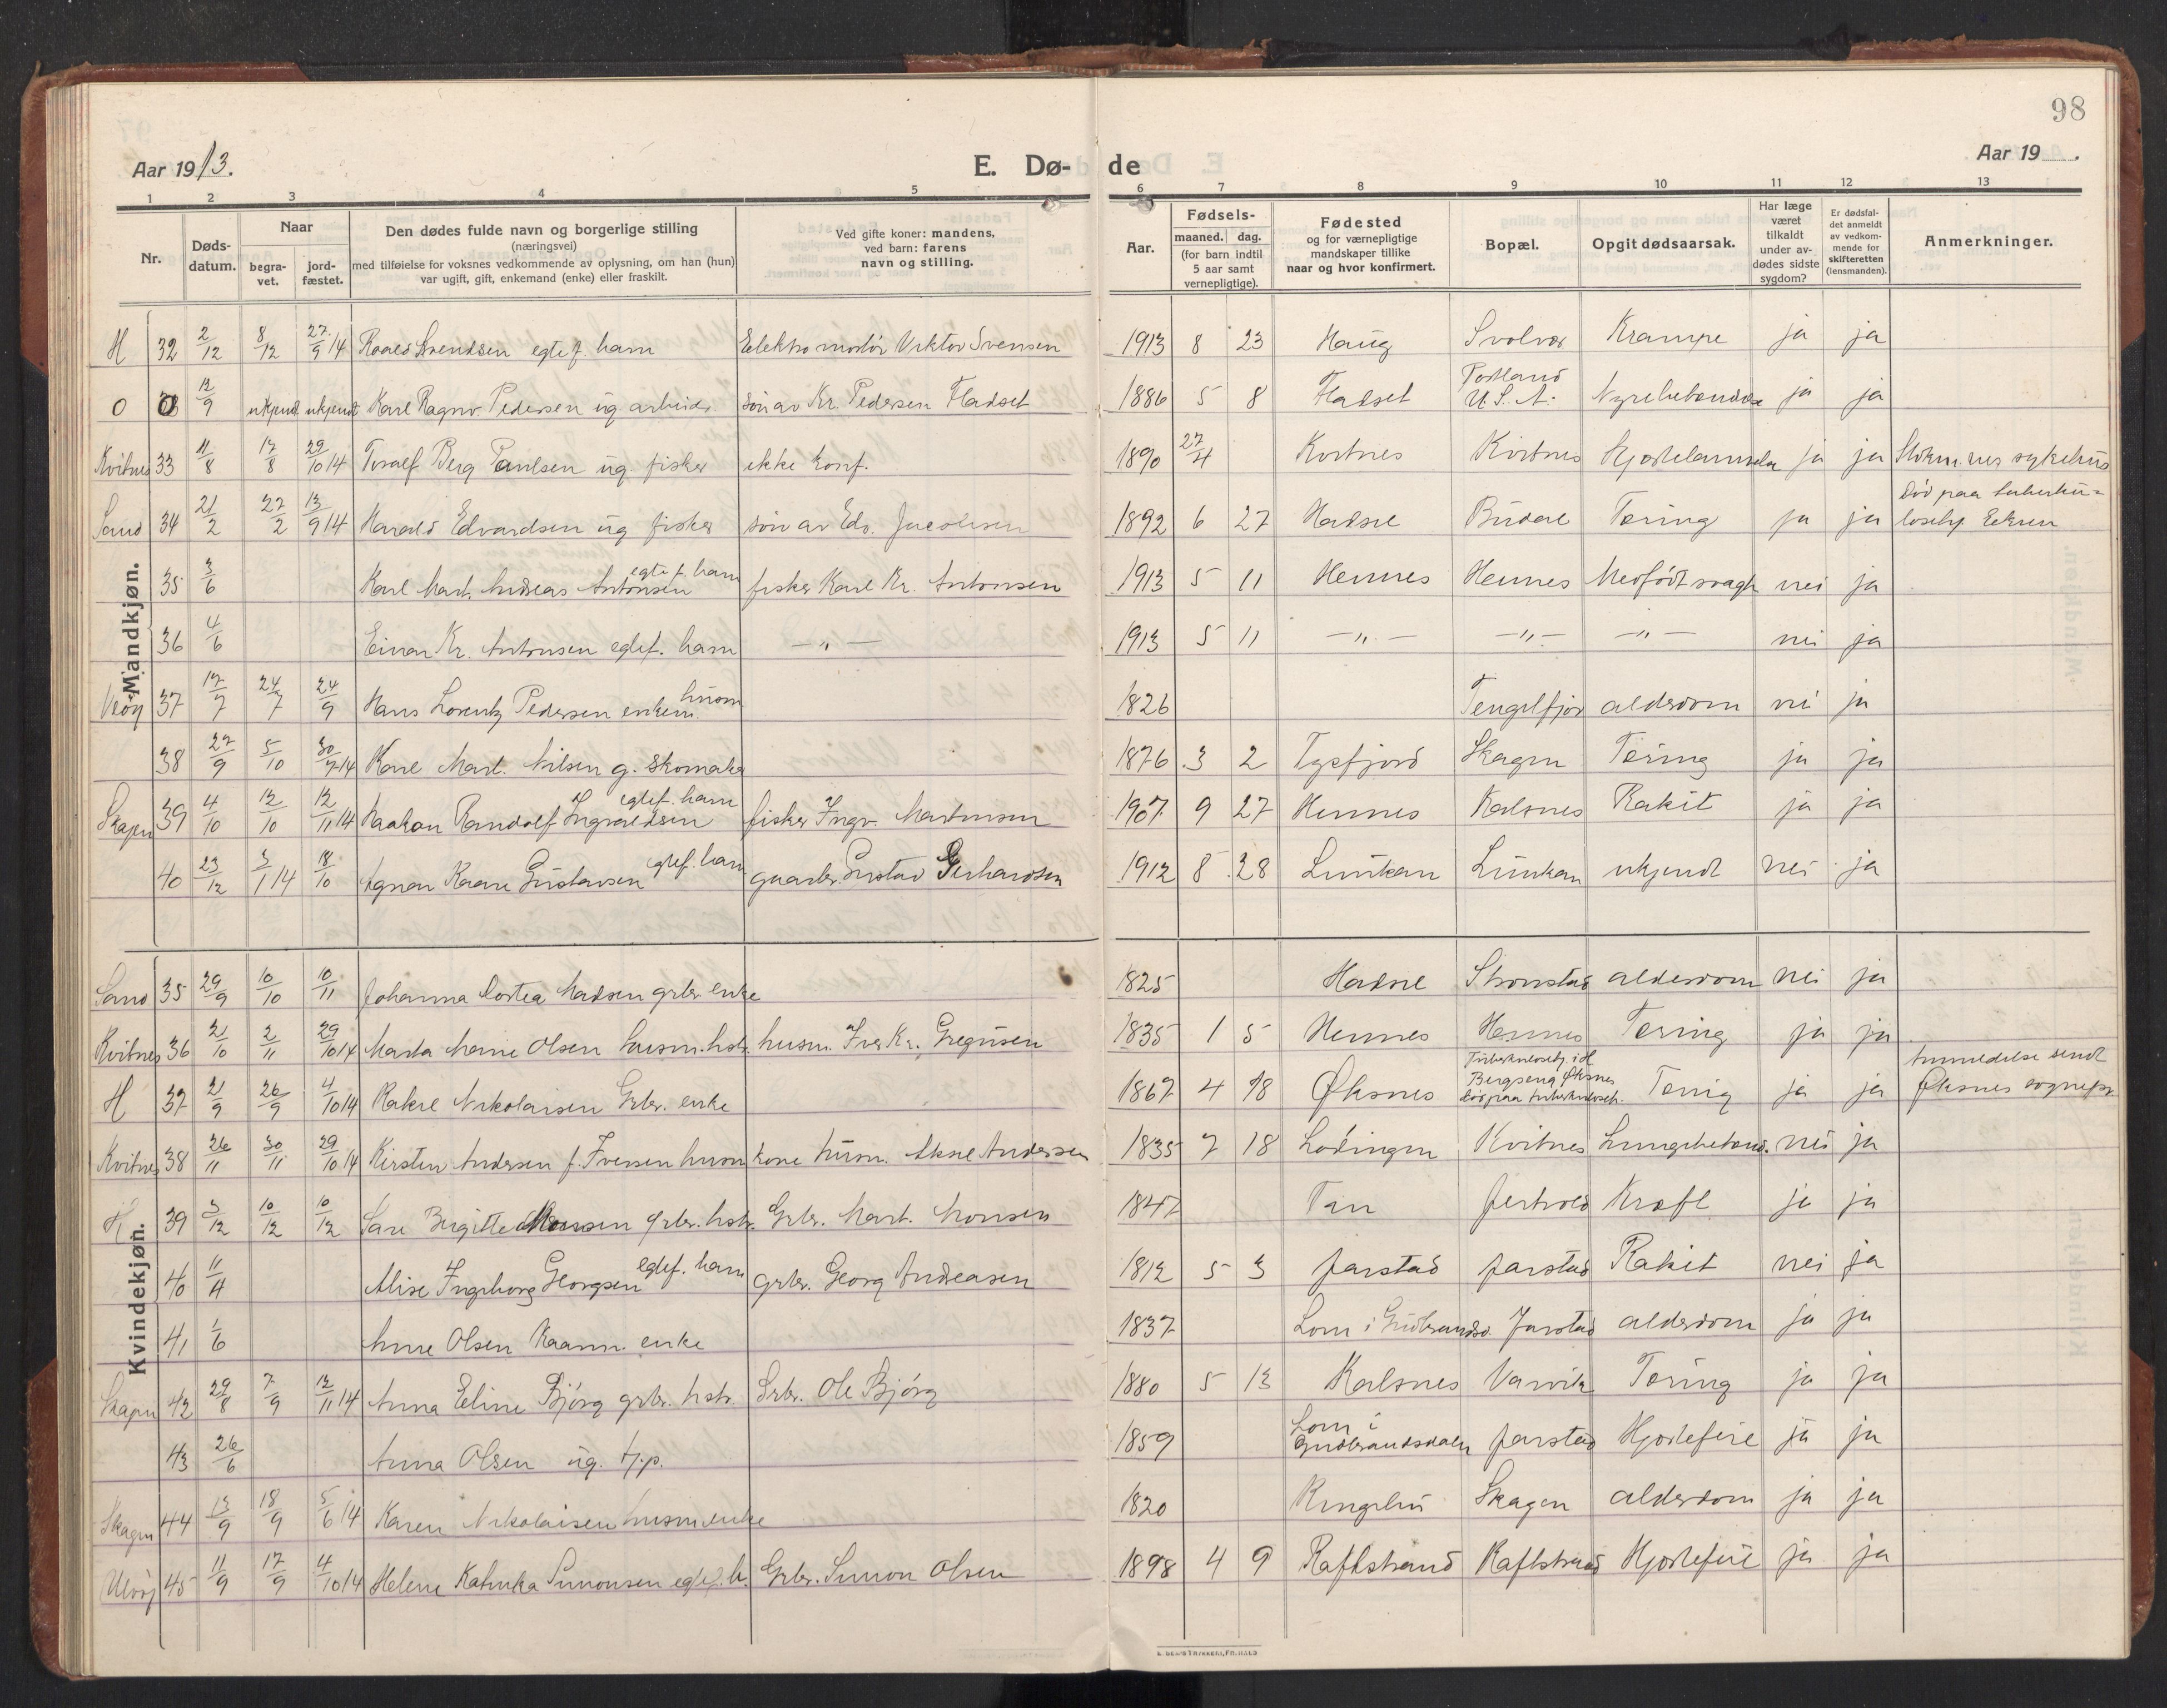 98
Aar 1913.
E. Dø-
de
Aar 19 .
1 2 3 4 5 6 7 8 9 10 11 12 13
Nr.
Døds-
datum.
Naar
begra-
vet.
jord-
fæstet.
Den dødes fulde navn og borgerlige stilling
(næringsvei)
med tilføielse for voksnes vedkommende av oplysning, om han (hun)
var ugift, gift, enkemand (enke) eller fraskilt.
Ved gifte koner: mandens,
ved barn: farens
navn og stilling.
Aar.
Fødsels-
maaned. dag.
(for barn indtil
5 aar samt
vernepligtige).
Fødested
og for værnepligtige
mandskaper tillike
naar og hvor konfirmert.
Bopæl.
Opgit dødsaarsak.
Har læge
været
tilkaldt
under av-
dødes sidste
sygdom?
Er dødsfal-
det anmeldt
av vedkom-
mende for
skifteretten
(lensmanden).
Anmerkninger.
Mandkjøn.
H 32 2/12 8/12 27/9 14 Svendsen egtef. barn Elektromontør Viktor Svensen 1913 8 23 Haug Svolvær Krampe ja ja
O 0 12/9 ukjendt ukjendt Karl Ragnv. Pedersen ug arbeider søn av Kr. Pedersen Fladset 1886 5 8 Fladset Portland U.S.A. Nyrebetændelse ja ja
Kvitnes 33 11/8 17/8 29/10 14 Toralf Berg Paulsen ug. fisker ikke konf. 1890 27/4 Kvitnes Kvitnes Hjertelammelse ja ja Stokm.nes sykehus
Sand 34 21/2 27/2 13/9 14 Harald Edvardsen ug fisker søn av Edv. Jacobsen 1892 6 27 Hadsel Budal Tæring ja ja Død paa tuberku-
losehj.
35 3/6 Karl Mart. Andreas Antonsen egtef. barn fisker Karl Kr. Antonsen 1913 5 11 Hennes Hennes Medfødt svagh. nei ja
36 4/6 Einar Kr. Antonsen egtef. barn —"— 1913 5 11 —"— —"— —"— nei ja
37 17/7 24/7 24/9 Hans Lorentz Pedersen enkem. husm. 1826 Tengelfjor alderdom nei ja
38 27/9 5/10 30/7 14 Karl Mart. Nilsen g. skomaker 1876 3 2 Skagen Tæring ja ja
Skagen 39 4/10 12/10 12/11 14 Haakon Randolf Ingvaldsen egtef. barn fisker Ingv. Martinsen 1907 9 27 Hennes Kalsnes Rakit ja ja
40 23/12 3/1 14 18/10 Agnar Kaare Gustavsen egtef. barn gaardbr. Gustav Gerhardsen 1912 8 28 Lunkan Lunkan ukjendt nei ja
Kvindekjøn.
Sand 35 29/9 10/10 10/11 Johanna Dortea Madsen grbr. enke 1825 Hadsel Stronstad alderdom nei ja
Kvitnes 36 21/10 2/11 29/10 14 Marta Marie Olsen husm. hstr. husm. Iver Kr. Gregusen 1835 1 5 Hennes Hennes Tæring ja ja
H 37 21/9 26/9 4/10 14 Rakel Nikolaisen Grbr. enke 1867 4 18 Øksnes Tuberkulosehj. i H
Bergseng Øksnes
død paa tuberkuloseh. Tæring ja ja Anmeldelse sendt
Øksnes sognepr.
Kvitnes 38 26/11 30/11 29/10 14 Kirsten Andersen f. Iversen husm kone husm. Aksel Andersen 1835 7 18 Lødingen Kvitnes Lungebetænd. nei ja
H 39 3/12 10/12 10/12 Sare Birgitte Monsen grbr. hstr. Grbr. Mart. Monsen 1847 Kræft ja ja
40 11/4 Alise Ingeborg Georgsen egtef. barn grbr. Georg Andreasen 1912 5 3 Jarstad Jarstad Rakit nei ja
41 1/6 Anne Olsen Kaarm. enke 1837 Lom i Gudbrandsd. Jarstad alderdom ja ja
Skagen 42 29/8 7/9 12/11 14 Anna Eline Bjørg grbr. hstr. Grbr. Ole Bjørg 1880 5 13 Kalsnes Varvik Tæring ja ja
43 26/6 Anna Olsen ug. tj.p. 1859 Lom i
Gudbrandsdalen Jarstad Hjertefeil ja ja
Skagen 44 13/9 18/9 5/6 14 Karen Nikolaisen husm.enke 1820 Ringebu Skagen alderdom ja ja
Ulvøy 45 11/9 17/9 4/10 14 Helene Katinka Simonsen egtef. b. Grbr. Simon Olsen 1898 4 9 Raftstrand Raftstrand Hjertefeil ja ja